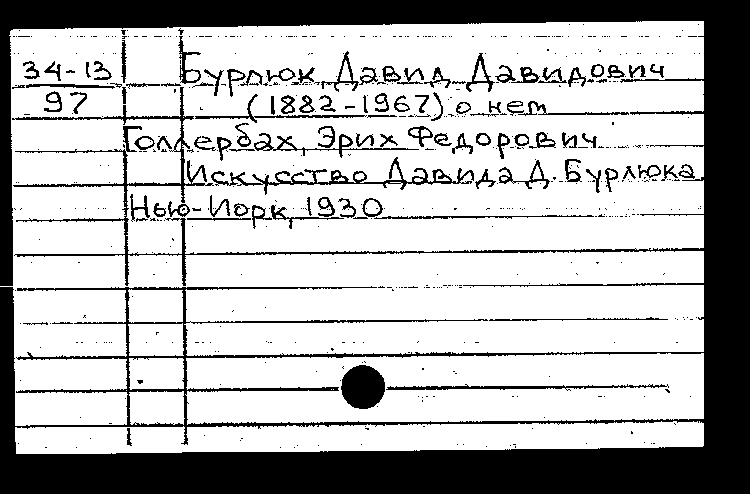 34-13
97
Бурлюк, Давид Давидович
(1882-1967) о нем
Голлербах, Эрих Федорович
Искусство Давида Д. Бурлюка.
Нью-Иорк, 1930